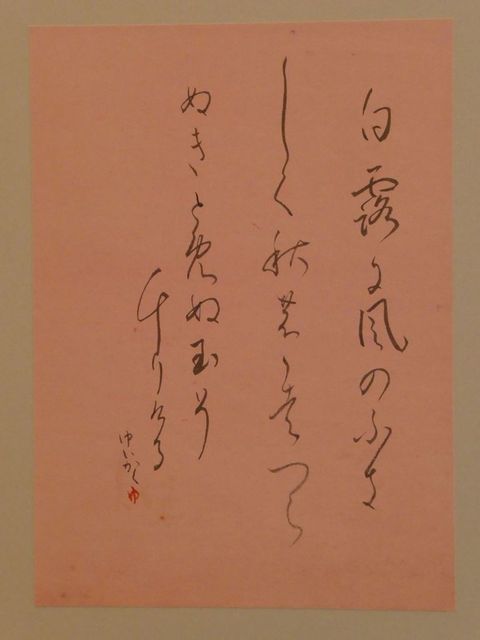 白露に風のふき
しく秋ののはつら
ぬきとめぬ玉そ
ちりける